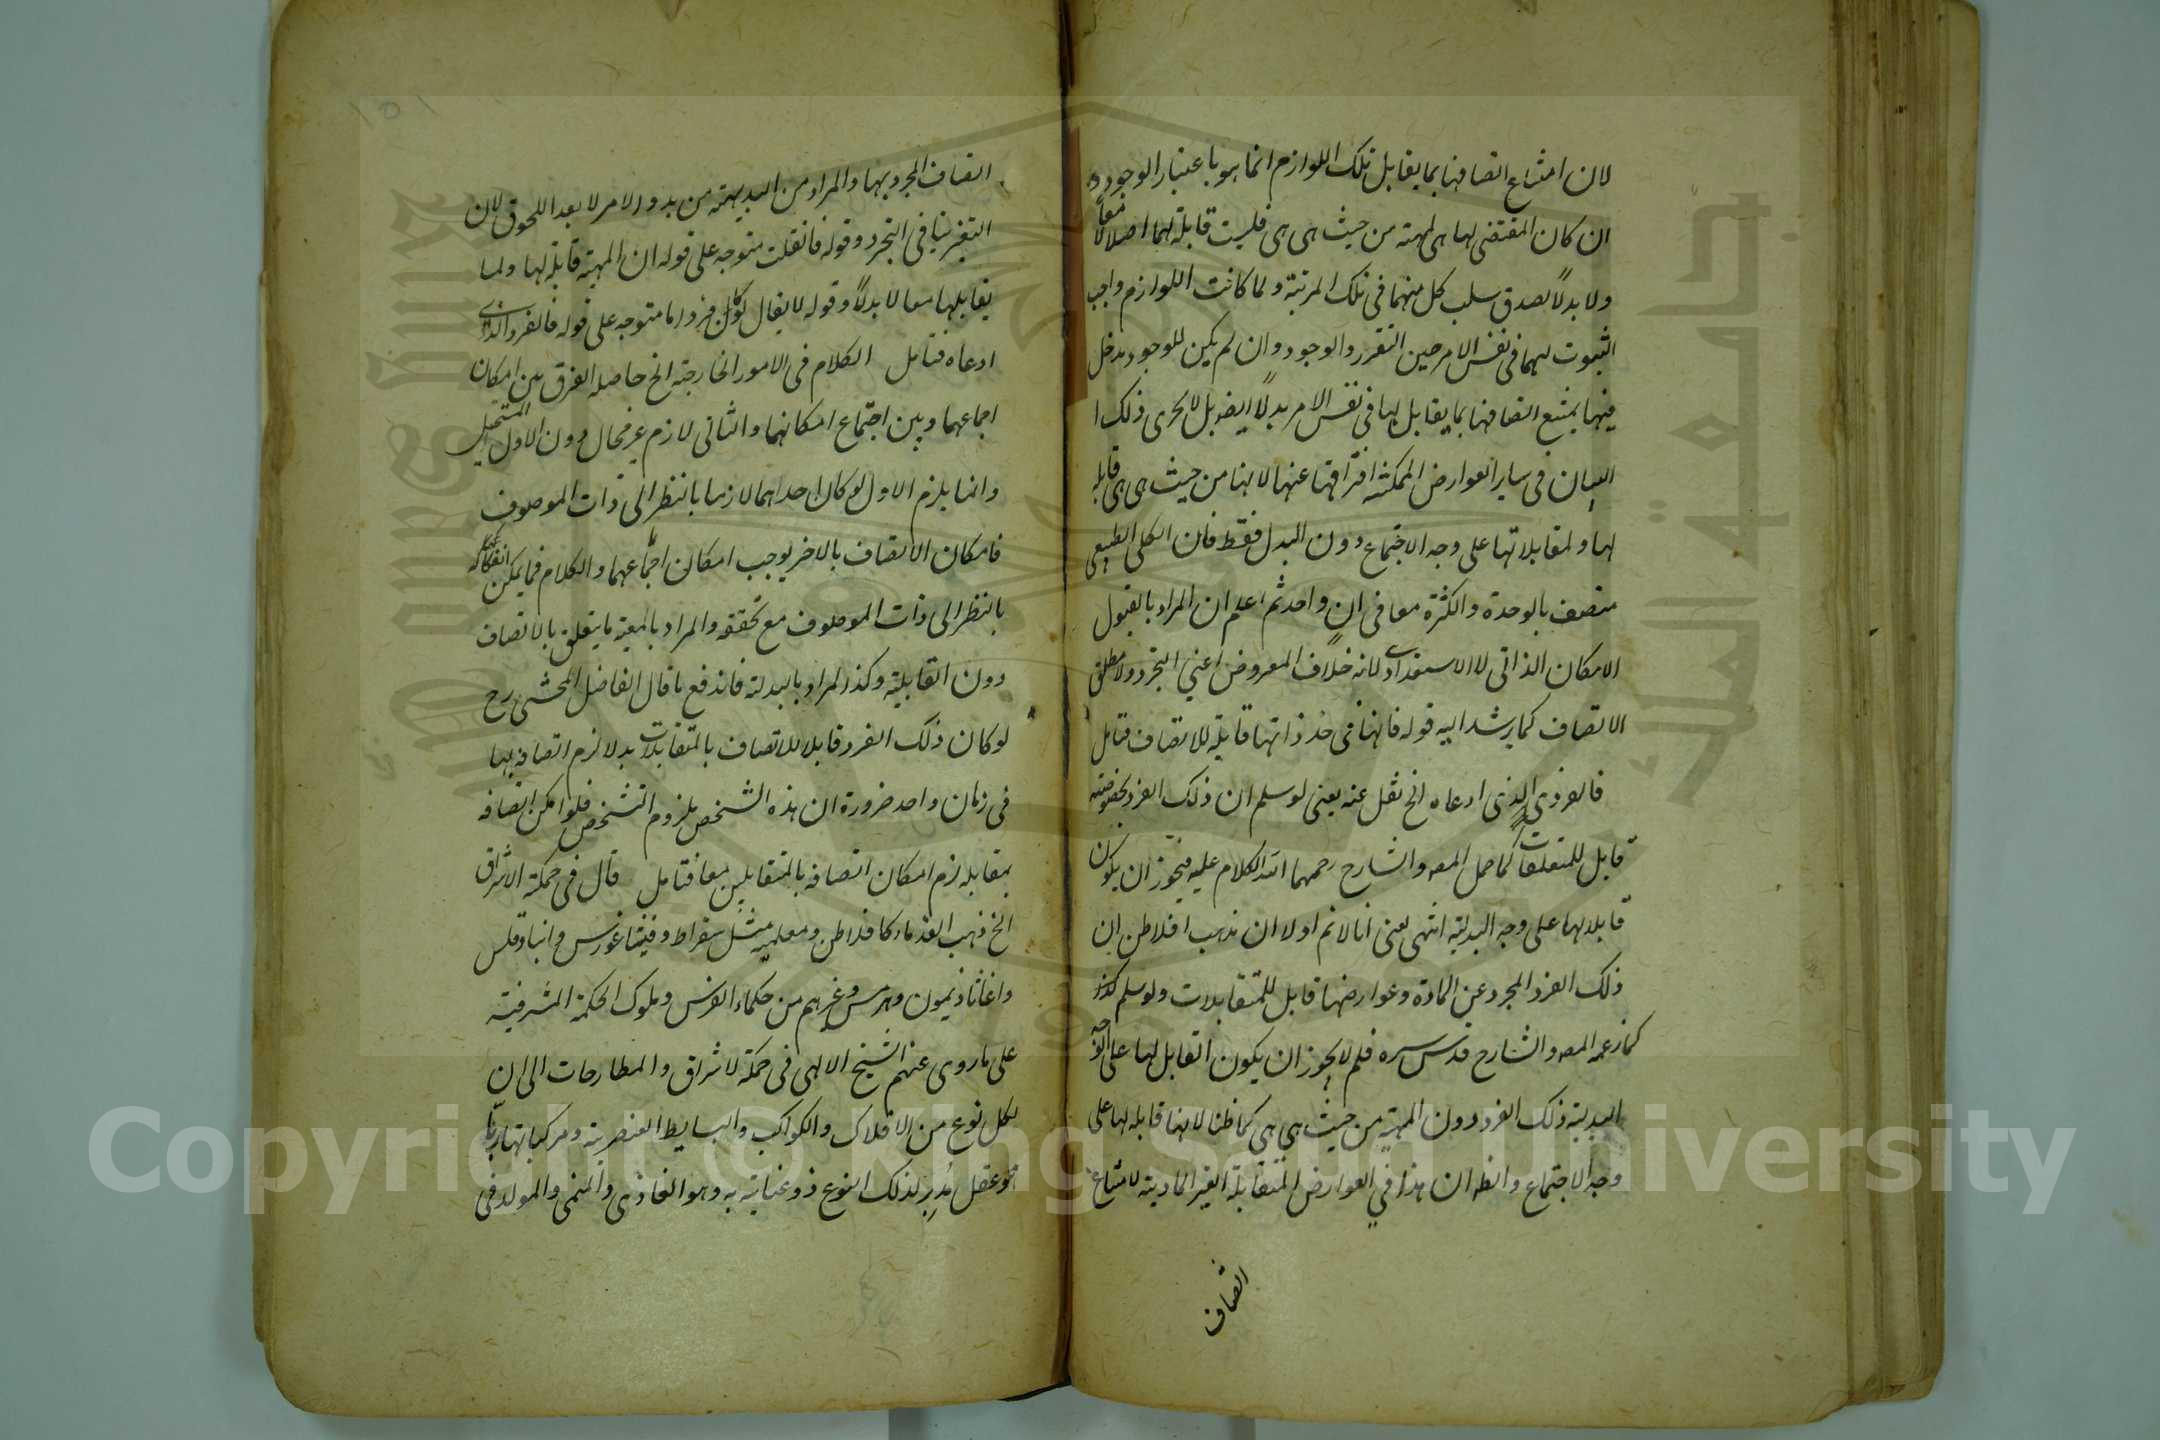 لان امتناع اتصافها بما يقابل تلك اللوازم انما هو باعتبار الوجود و
ان كان المقتضى لها هى المهية من حيث هى هى فليست قابلة لهما اصلا لا معاً
ولا بدلاً لصدق سلب كل منهما فى تلك المرتبة ولما كانت اللوازم واجب
الثبوت لهما فى نفس الامر حين التقرر والوجود وان لم يكن للوجود مدخل
فيها يمتنع اتصافها بما يقابل لها فى نفس الامر بدلاً ايضا بل لا يجرى ذلك ا
البيان فى ساير العوارض الممكنة افتراقها عنها لانها من حيث هى هى قابلة
لها ولمقابلاتها على وجه الاجتماع دون البدل فقط فان الكلى الطبيعى
متصف بالوحدة والكثرة معا فى ان واحد ثم اعلم ان المراد بالقبول
الامكان الذاتى لا الاستعدادى لانه خلاف المفروض اعني التجرد ولا مطلق
الاتصاف كما يرشد اليه قوله فانها فى حد ذاتها قابلة للاتصاف فتامل
فالفرد الذى ادعاه الخ نقل عنه يعنى لو سلم ان ذلك الفرد بخصوصه
قابل للمتقابلات كما حمل المص والشارح رحمهما الله الكلام عليه فيجوز ان يكون
قابلا لها على وجه البدلية انتهى يعنى انا لا نم اولا ان مذهب افلاطن ان
ذلك الفرد المجرد عن المادة وعوارضها قابل للمتقابلات ولو سلم كذلك
كما زعمه المص والشارح قدس سره فلم لا يجوز ان يكون القابل لها على الوجه
البدلية ذلك الفرد دون المهية من حيث هى هى كما ظن لانها قابلة لها على
وجه الاجتماع والظ ان هذا في العوارض المتقابلة الغير المادية لامتناع
اتصاف
اتصاف المجرد بها والمراد من البديهة من بدو الامر لا بعد اللحوق لان
التغير ينافى التجرد وقوله فان قلت متوجه على قوله ان المهية قابلة لها ولما
يقابلها معا لا بدلاً وقوله لا يقال لو كان فرد اما متوجه على قوله فالفرد الذى
ادعاه فتامل الكلام فى الامور الخارجة الخ حاصله الفرق بين امكان
اجماعهما وبين اجتماع امكانهما والثانى لازم غير محال دون الاول المستحيل
وانما يلزم الاول لو كان احدهما لازما بالنظر الى ذات الموصوف
فامكان الاتصاف بالاخر يوجب امكان اجتماعهما والكلام فيما يمكن انفكاكه
بالنظر الى ذات الموصوف مع تحققه والمراد بالمعية ما يتعلق بالاتصاف
دون القابلية وكذا المراد بالبدلية فاندفع ما قال الفاضل المحشى رح
لو كان ذلك الفرد قابلا للاتصاف بالمتقابلات بدلا لزم اتصافه بها
فى زمان واحد ضرورة ان هذه الشخص ملزوم التشخص فلو امكن اتصافه
بمقابله لزم امكان اتصافه بالمتقابلين معا فتامل قال فى حكمة الاشراق
الخ ذهب القدماء كافلاطن ومعلميه مثل سقراط وفيثاغورس وانباذقلس
واغاثاذيمون وهرمس وغيرهم من حكماء الفرس وملوك الحكمة المشرقية
على ما روى عنهم الشيخ الالهى فى حكمة الاشراق والمطارحات الى ان
لكل نوع من الافلاك والكواكب والبسايط العنصرية ومركباتها ربّا
هو عقل مدبر لذلك النوع ذو عناية به وهو الغاذى والمنمى والمولد فى
Copyright © King Saud University